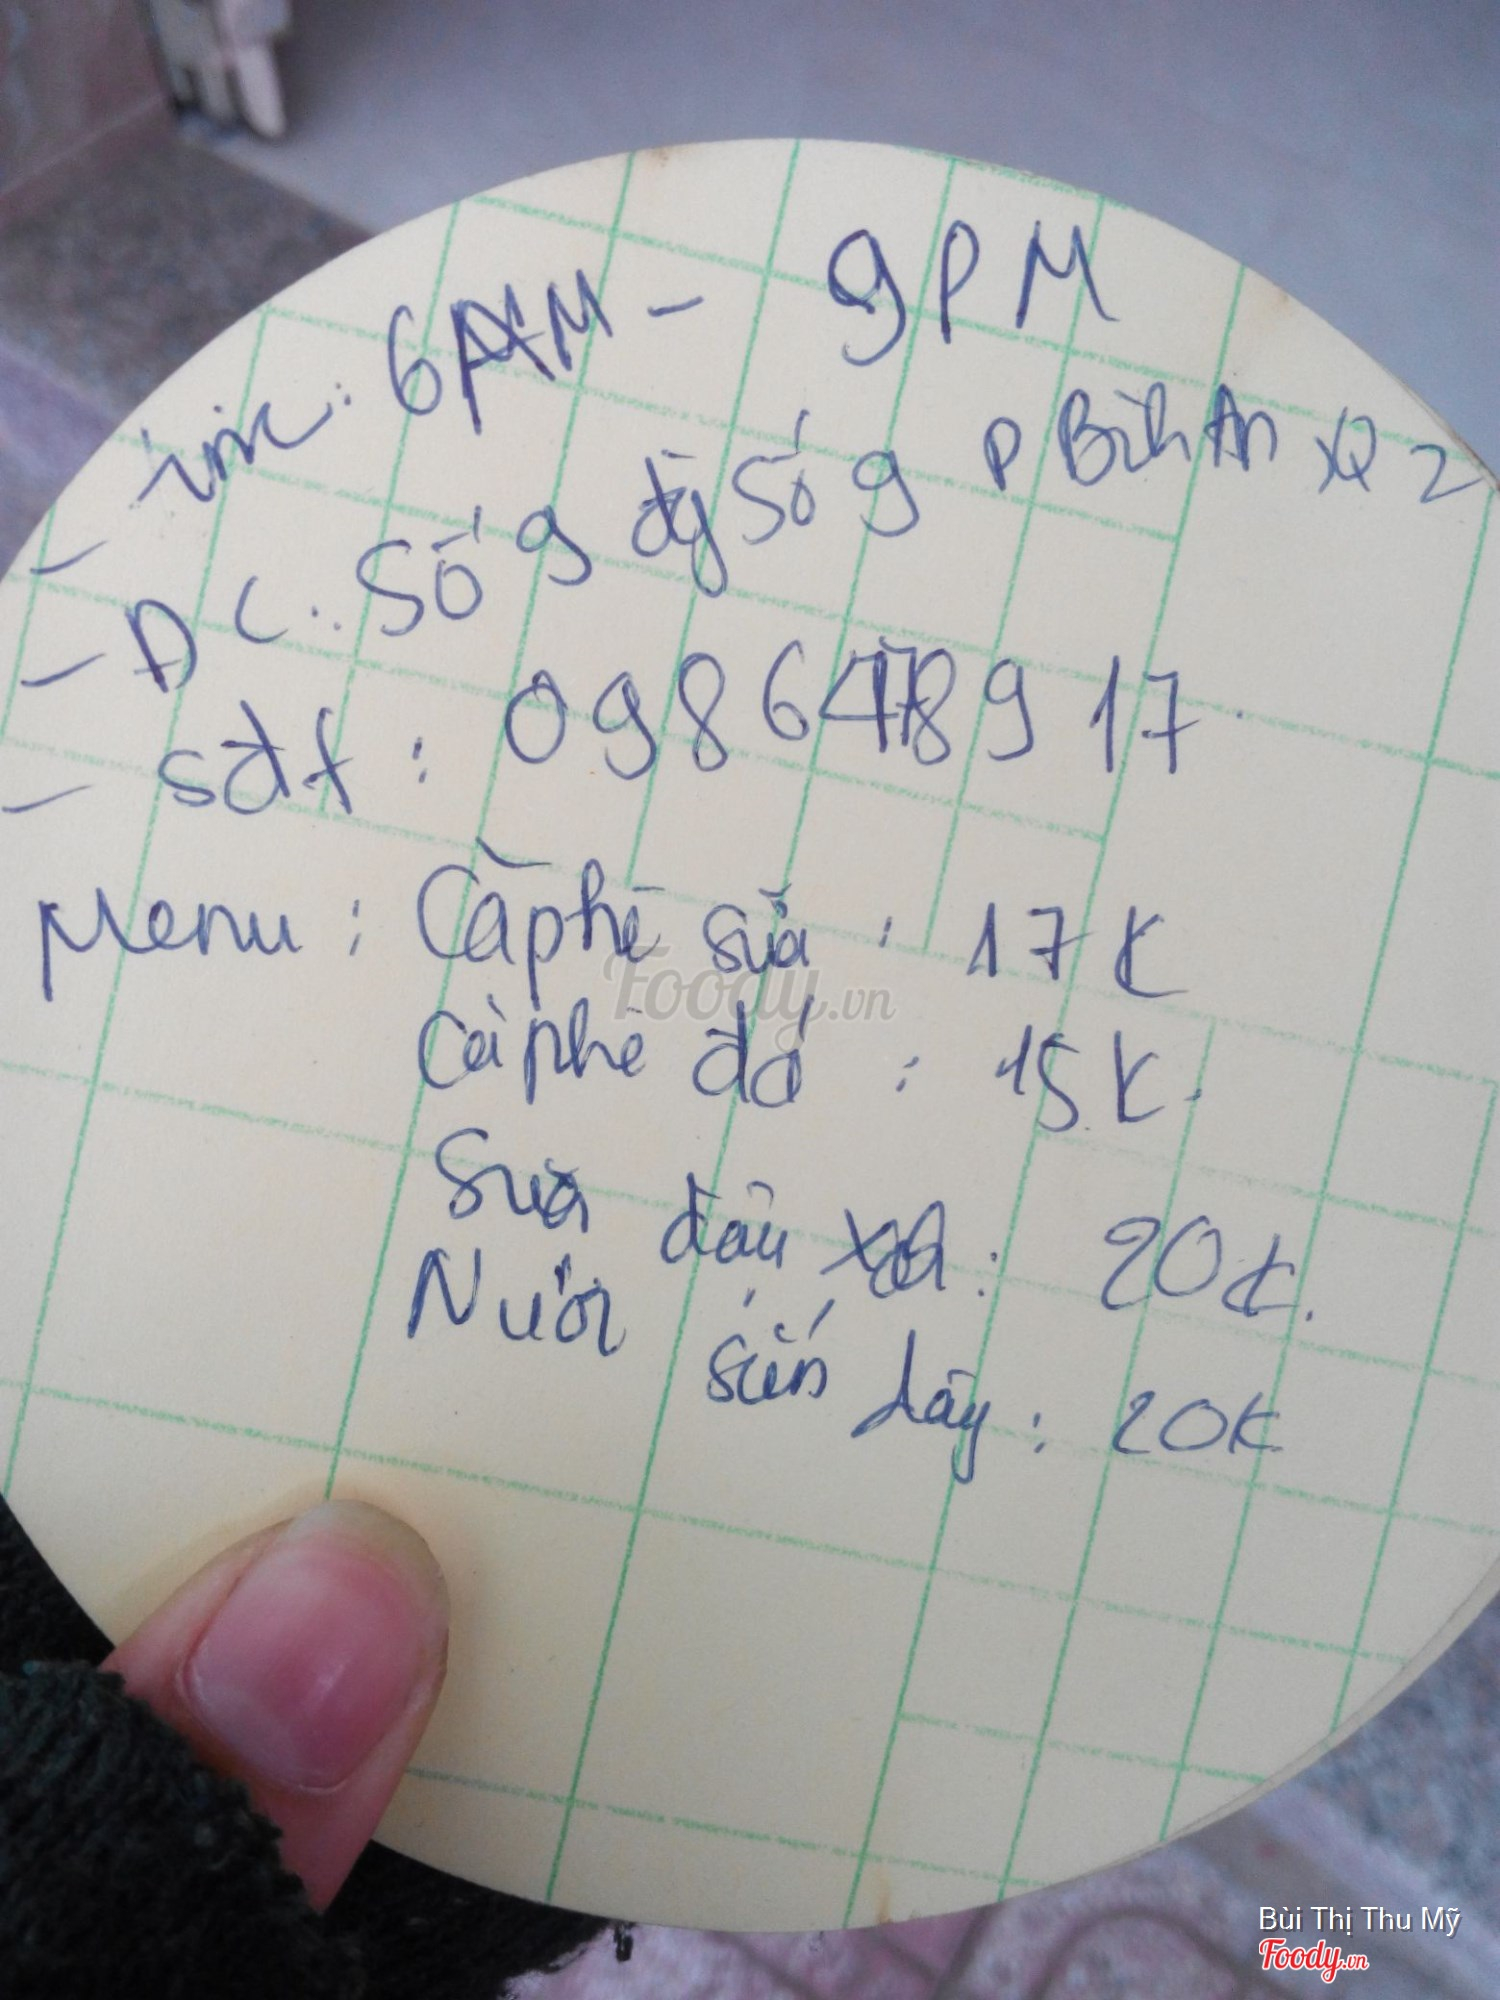 - Time: 6AM - 9PM
- ĐC: Số 9 đg Số 9 P Bình An Q2
- sđt: 0986 8917
Menu: Cà phê sữa: 17K
Cà phê đá: 15K.
Sữa đậu xanh: 20K.
Nước sắn dây: 20K
Foody.vn
Bùi Thị Thu Mỹ
Foody.vn